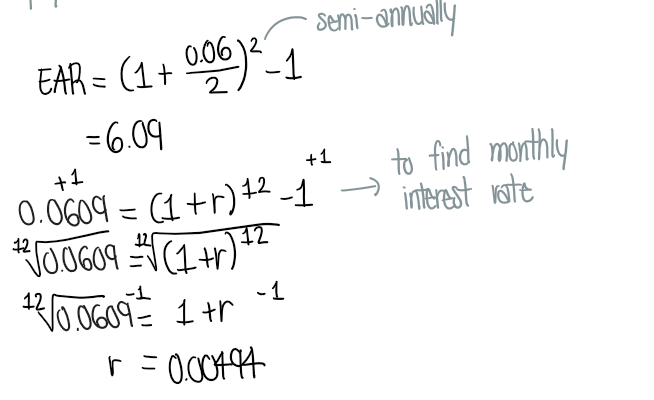 semi-annually
EAR = (1 + 0.06/2)² - 1
= 6.09
+1 +1
0.0609 = (1 + r)¹² - 1 → to find monthly interest rate
¹²√0.0609 = ¹²√(1+r)¹²
¹²√0.0609 -1 = 1 + r -1
r = 0.00494